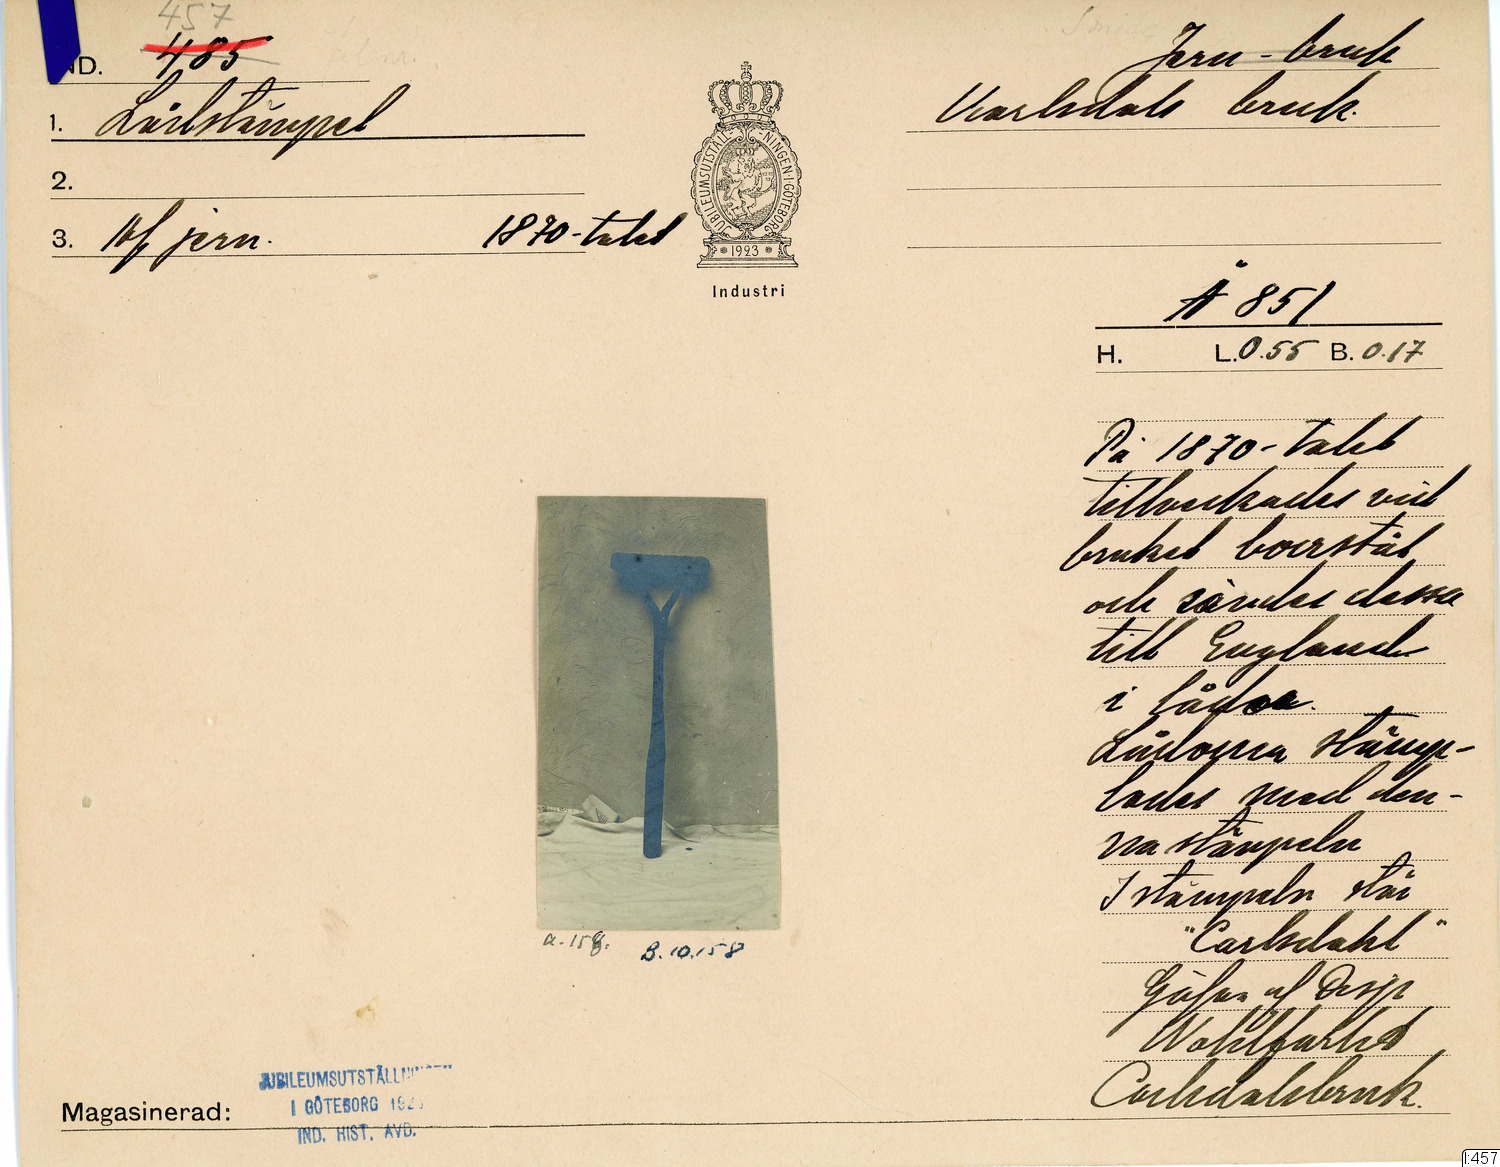 457
IND. 485
Jern-bruk
1. Lådstämpel
Karlsdals bruk.
2.
3. Af jern. 1870-talet
JUBILEUMSUTSTÄLLNINGEN I GÖTEBORG
1923
Industri
Å 851
H. L. 0.55 B. 0.17
På 1870-talet
tillverkades vid
bruket borrstål
och sändes dessa
till England
i lådor.
Lådorna stämp-
lades med den-
na stämpeln
I stämpeln står
"Carlsdahl"
Gåfva af Disp
Wohlfarth
Carlsdalsbruk.
a. 158. B. 10.158
JUBILEUMSUTSTÄLLNINGEN
I GÖTEBORG 1923
IND. HIST. AVD.
Magasinerad:
I:457